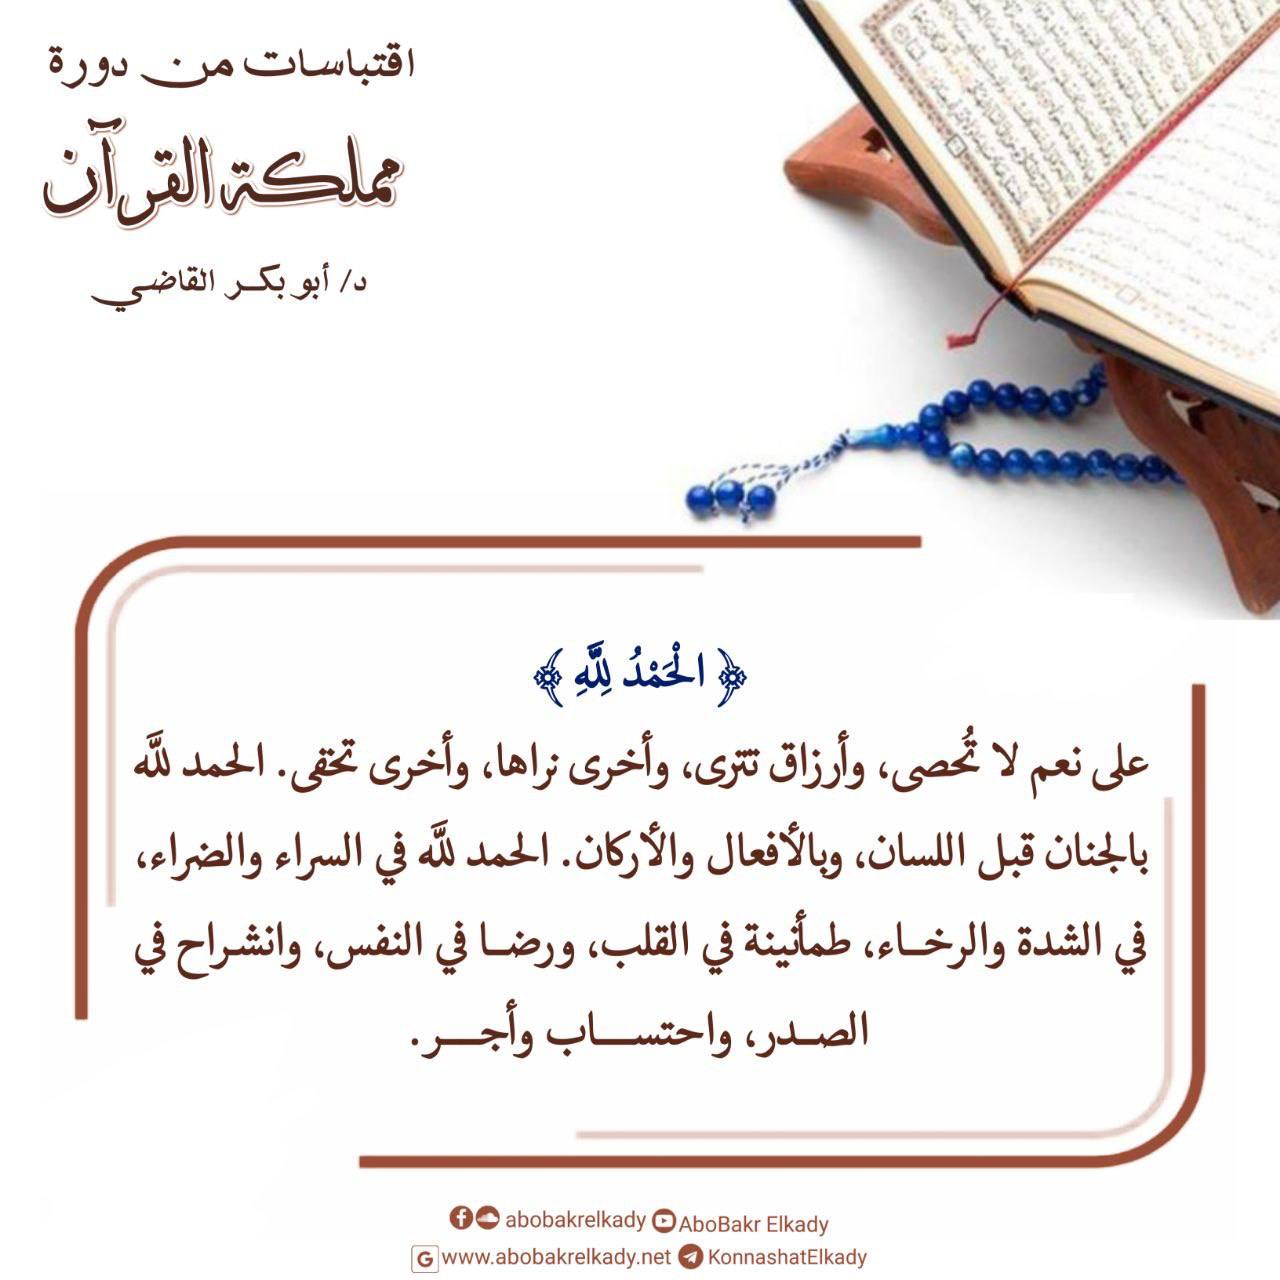 اقتباسات من دورة
مملكة القرآن
د/ أبو بكر القاضي
﴿ الْحَمْدُ لِلَّهِ ﴾
على نعم لا تُحصى، وأرزاق تترى، وأخرى نراها، وأخرى تخفى. الحمد للَّه
بالجنان قبل اللسان، وبالأفعال والأركان. الحمد للَّه في السراء والضراء،
في الشدة والرخـاء، طمأنينة في القلب، ورضـا في النفس، وانشـراح في
الصـدر، واحتســاب وأجــر.
abobakrelkady AboBakr Elkady
www.abobakrelkady.net KonnashatElkady